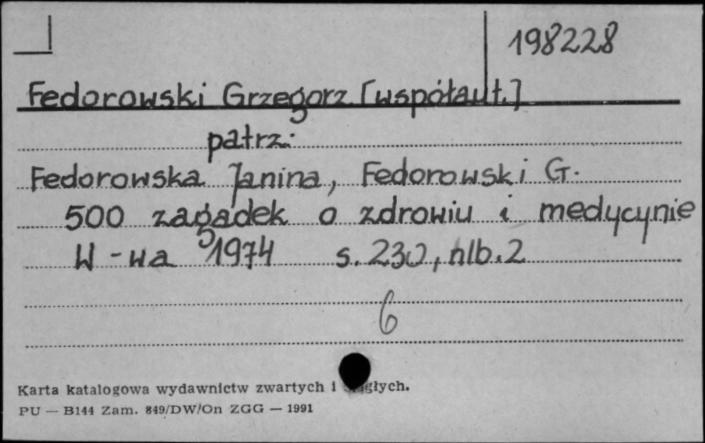 198228
Fedorowski Grzegorz [współaut.]
patrz:
Fedorowska Janina, Fedorowski G.
500 zagadek o zdrowiu i medycynie
W-wa 1974 s. 230, nlb. 2
6
Karta katalogowa wydawnictw zwartych i
PU — B144 Zam. 849/DW/On ZGG — 1991